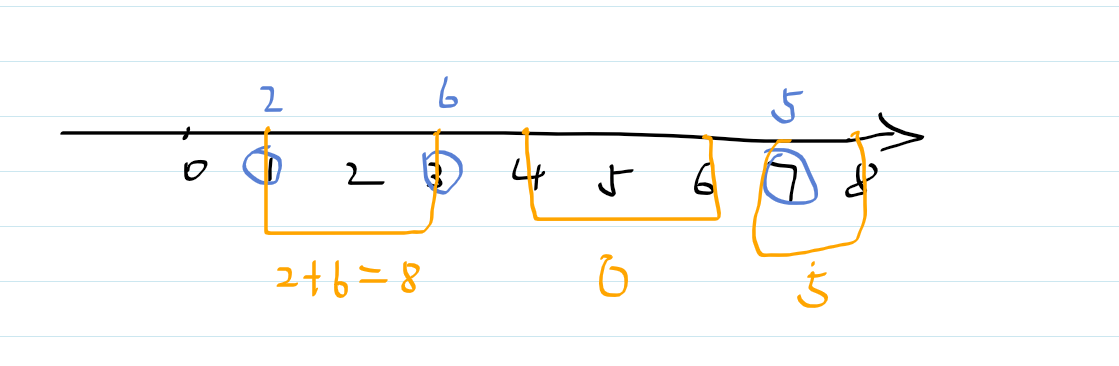 2 6 5
0 1 2 3 4 5 6 7 8
2+6=8 0 5